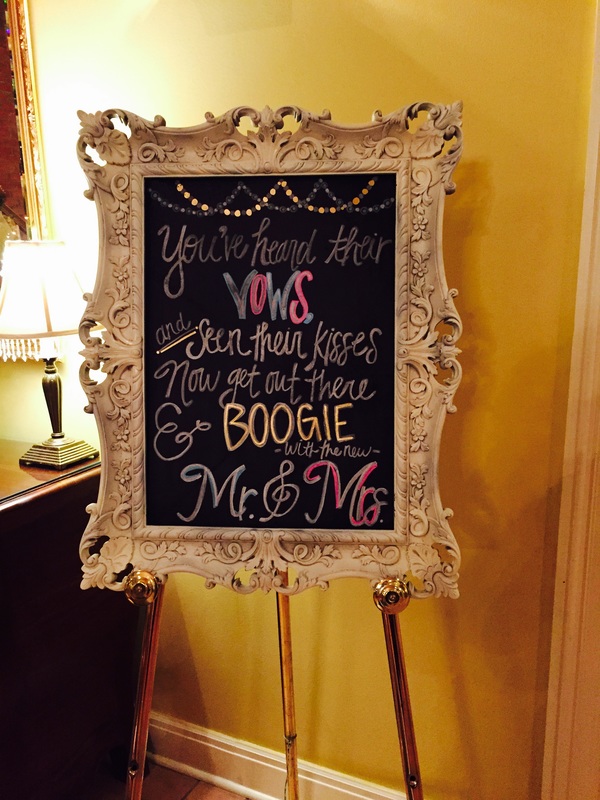 You've heard their
VOWS,
and seen their kisses
Now get out there
& BOOGIE
-with the new-
Mr. & Mrs.